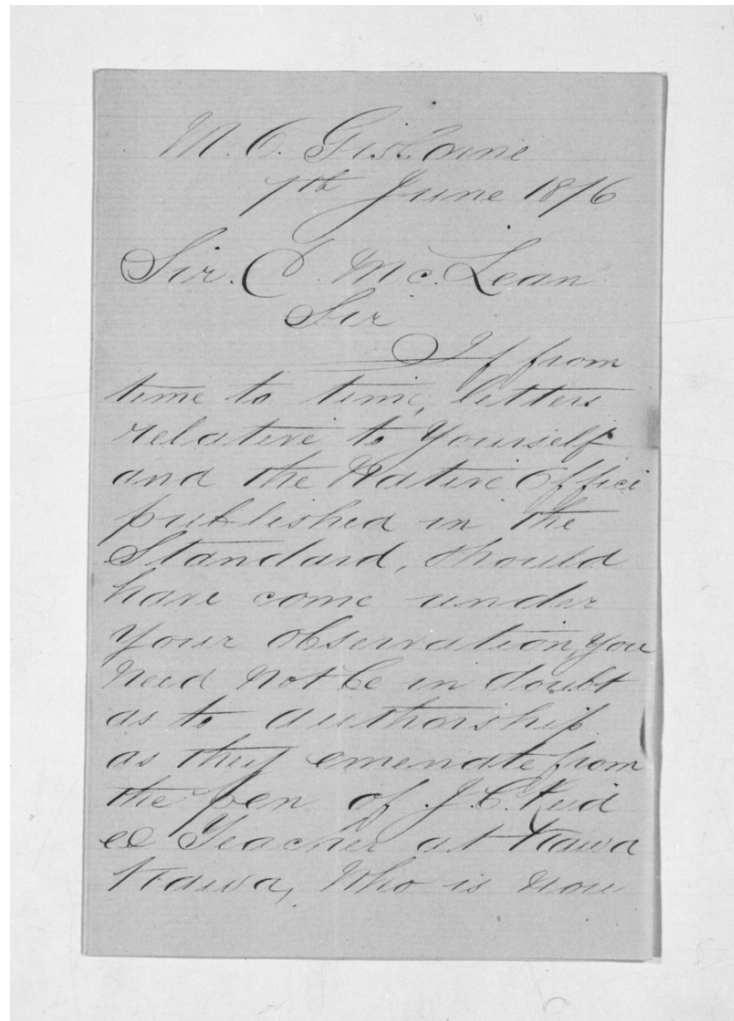 M. O. Gisborne
7th June 1876
Sir. D. McLean
Sir
If from
time to time, letters
relative to yourself
and the Native Office
published in the
Standard, should
have come under
your observation, you
need not be in doubt
as to authorship
as they emenate from
the pen of J. C. Reid
ex Teacher at Kawa
Kawa, who is now